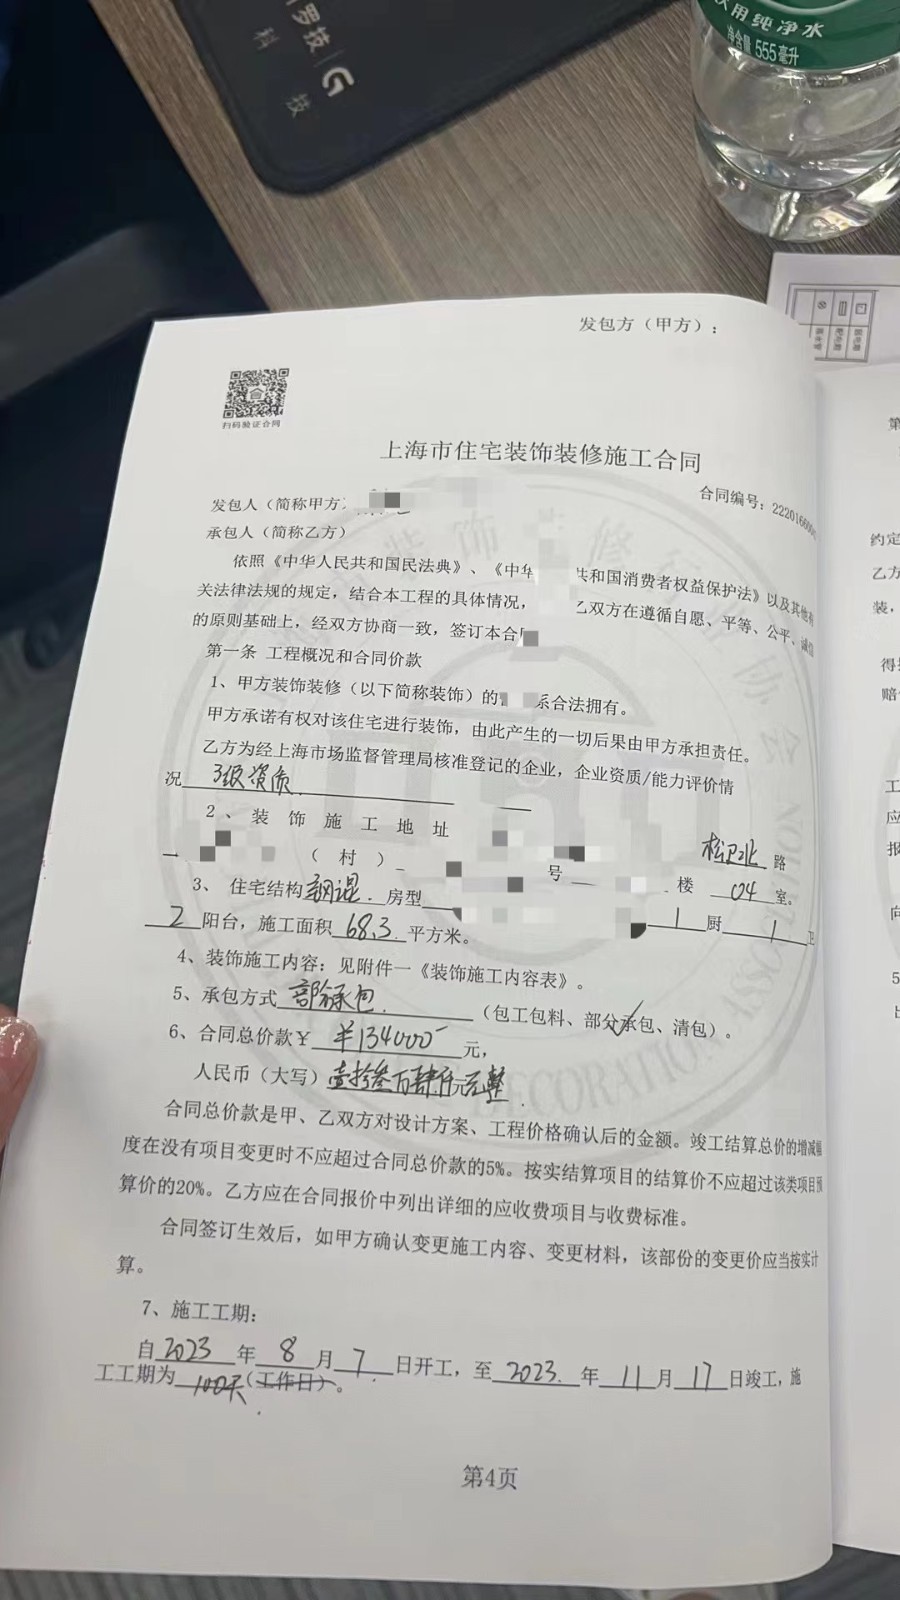 罗技 G
科 技
饮用纯净水
净含量 555毫升
发包方（甲方）：
扫码验证合同
上海市住宅装饰装修施工合同
合同编号：222016600
发包人（简称甲方）
承包人（简称乙方）
依照《中华人民共和国民法典》、《中华 共和国消费者权益保护法》以及其他有
关法律法规的规定，结合本工程的具体情况， 乙双方在遵循自愿、平等、公平、诚信
的原则基础上，经双方协商一致，签订本合
第一条 工程概况和合同价款
1、甲方装饰装修（以下简称装饰）的 系合法拥有。
甲方承诺有权对该住宅进行装饰，由此产生的一切后果由甲方承担责任。
乙方为经上海市场监督管理局核准登记的企业，企业资质/能力评价情
况 3级资质
2、装饰施工地址 松卫北 路
（村） 号 楼 04 室。
3、住宅结构 钢混 房型 1 厨 1 卫
2 阳台，施工面积 68.3 平方米。
4、装饰施工内容：见附件一《装饰施工内容表》。
5、承包方式 部分承包 （包工包料、部分承包、清包）。
6、合同总价款￥ ￥134000 元，
人民币（大写） 壹拾叁万肆仟元整
合同总价款是甲、乙双方对设计方案、工程价格确认后的金额。竣工结算总价的增减幅
度在没有项目变更时不应超过合同总价款的5%。按实结算项目的结算价不应超过该类项目预
算价的20%。乙方应在合同报价中列出详细的应收费项目与收费标准。
合同签订生效后，如甲方确认变更施工内容、变更材料，该部份的变更价应当按实计
算。
7、施工工期：
自 2023 年 8 月 7 日开工，至 2023 年 11 月 17 日竣工，施
工工期为 100天（工作日）。
第4页